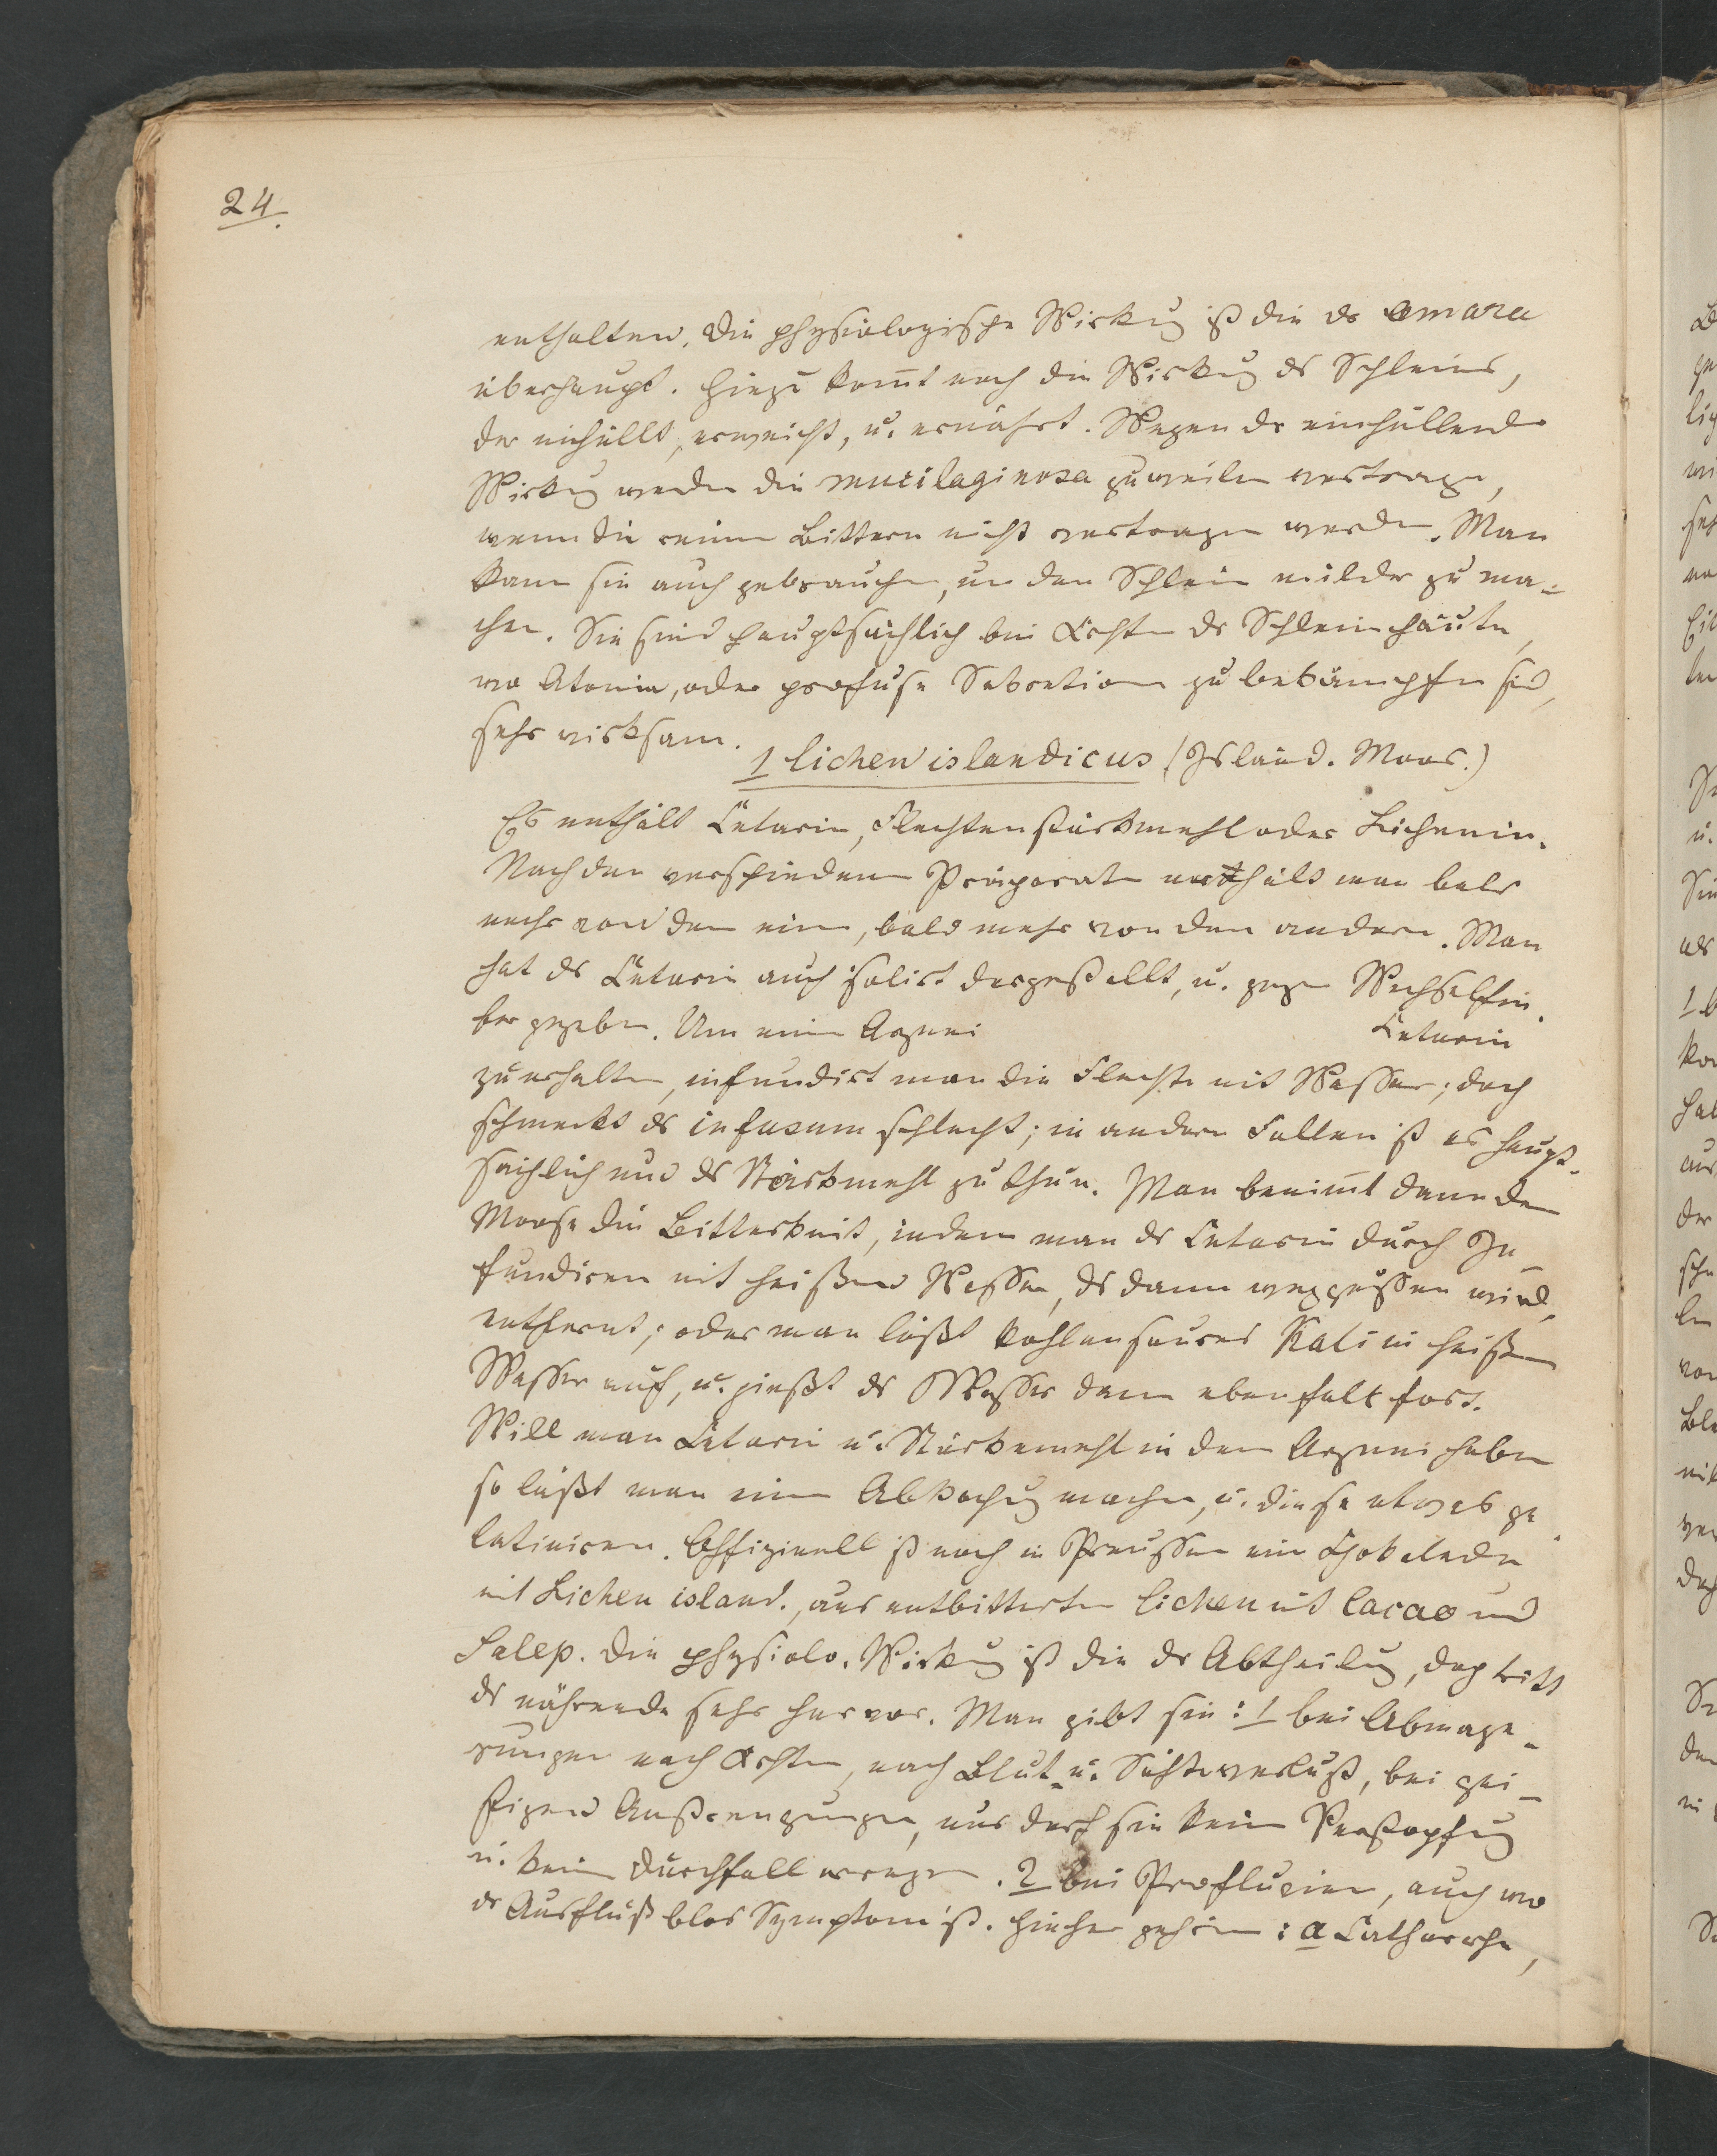 24.
enthalten. Die physiologische Wirkung ist die der amara
überhaupt. Hiezu kom̄t noch die Wirkung des Schleims,
der einhüllt, erweicht, u. ernährt. Wegen der einhüllenden
Wirkung werden die mucilaginosa zuweilen vertragen,
wenn die reinen Bittern nicht vertragen werden. Man
kann sie auch gebrauchen, um den Schleim milder zu ma-
chen. Sie sind hauptsächlich bei der Schleimhäute,
wo Atonie, oder profuse Sekretion zu bekämpfen sind,
sehr wirksam.
1 lichen islandicus (Isländ. Moos.)
Es enthält Cetarin, Flechtenstärkmehl oder Lichenin.
Nach den verschiedenen Präparaten enthält man bald
mehr von dem einen, bald mehr von dem andern. Man
hat das Cetarin auch isolirt dargestellt, u. gegen Wechselfie-
ber gegeben. Um eine Arznei Cetarin
zu erhalten, infundirt man die Flechte mit Wasser; doch
schmeckt das infusum schlecht; in andern Fällen ist es haupt-
sächlich um das Stärkmehl zu thun. Man benim̄t dann dem
Moose die Bitterkeit, indem man das Cetarin durch In-
fundiren mit heißem Wasser, das dann weggegossen wird,
entfernt; oder man löst kohlensaures Kali in heißem
Wasser auf, u. gießt das Wasser dann ebenfalls fort.
Will man Cetarin u. Stärkemehl in der Arznei haben
so läßt man eine Abkochung machen, u. diese etwas ge-
latiniren. Offizinell ist noch in Preussen eine Chokolade
mit Lichen island., aus entbittertem lichen mit Cacao und
Salep. Die physiolo. Wirkung ist die der Abtheilung, doch tritt
das nährende sehr hervor. Man gibt sie: 1 bei Abmage-
rungen nach , nach Blut- u. Säfteverlust, bei gei-
stigen Anstrengungen, nur darf sie keine Verstopfung
u. keinen Durchfall erregen. 2 bei Profluvien, auch wo
der Ausfluß blos Symptom ist. Hieher gehören: a Catharrhe,